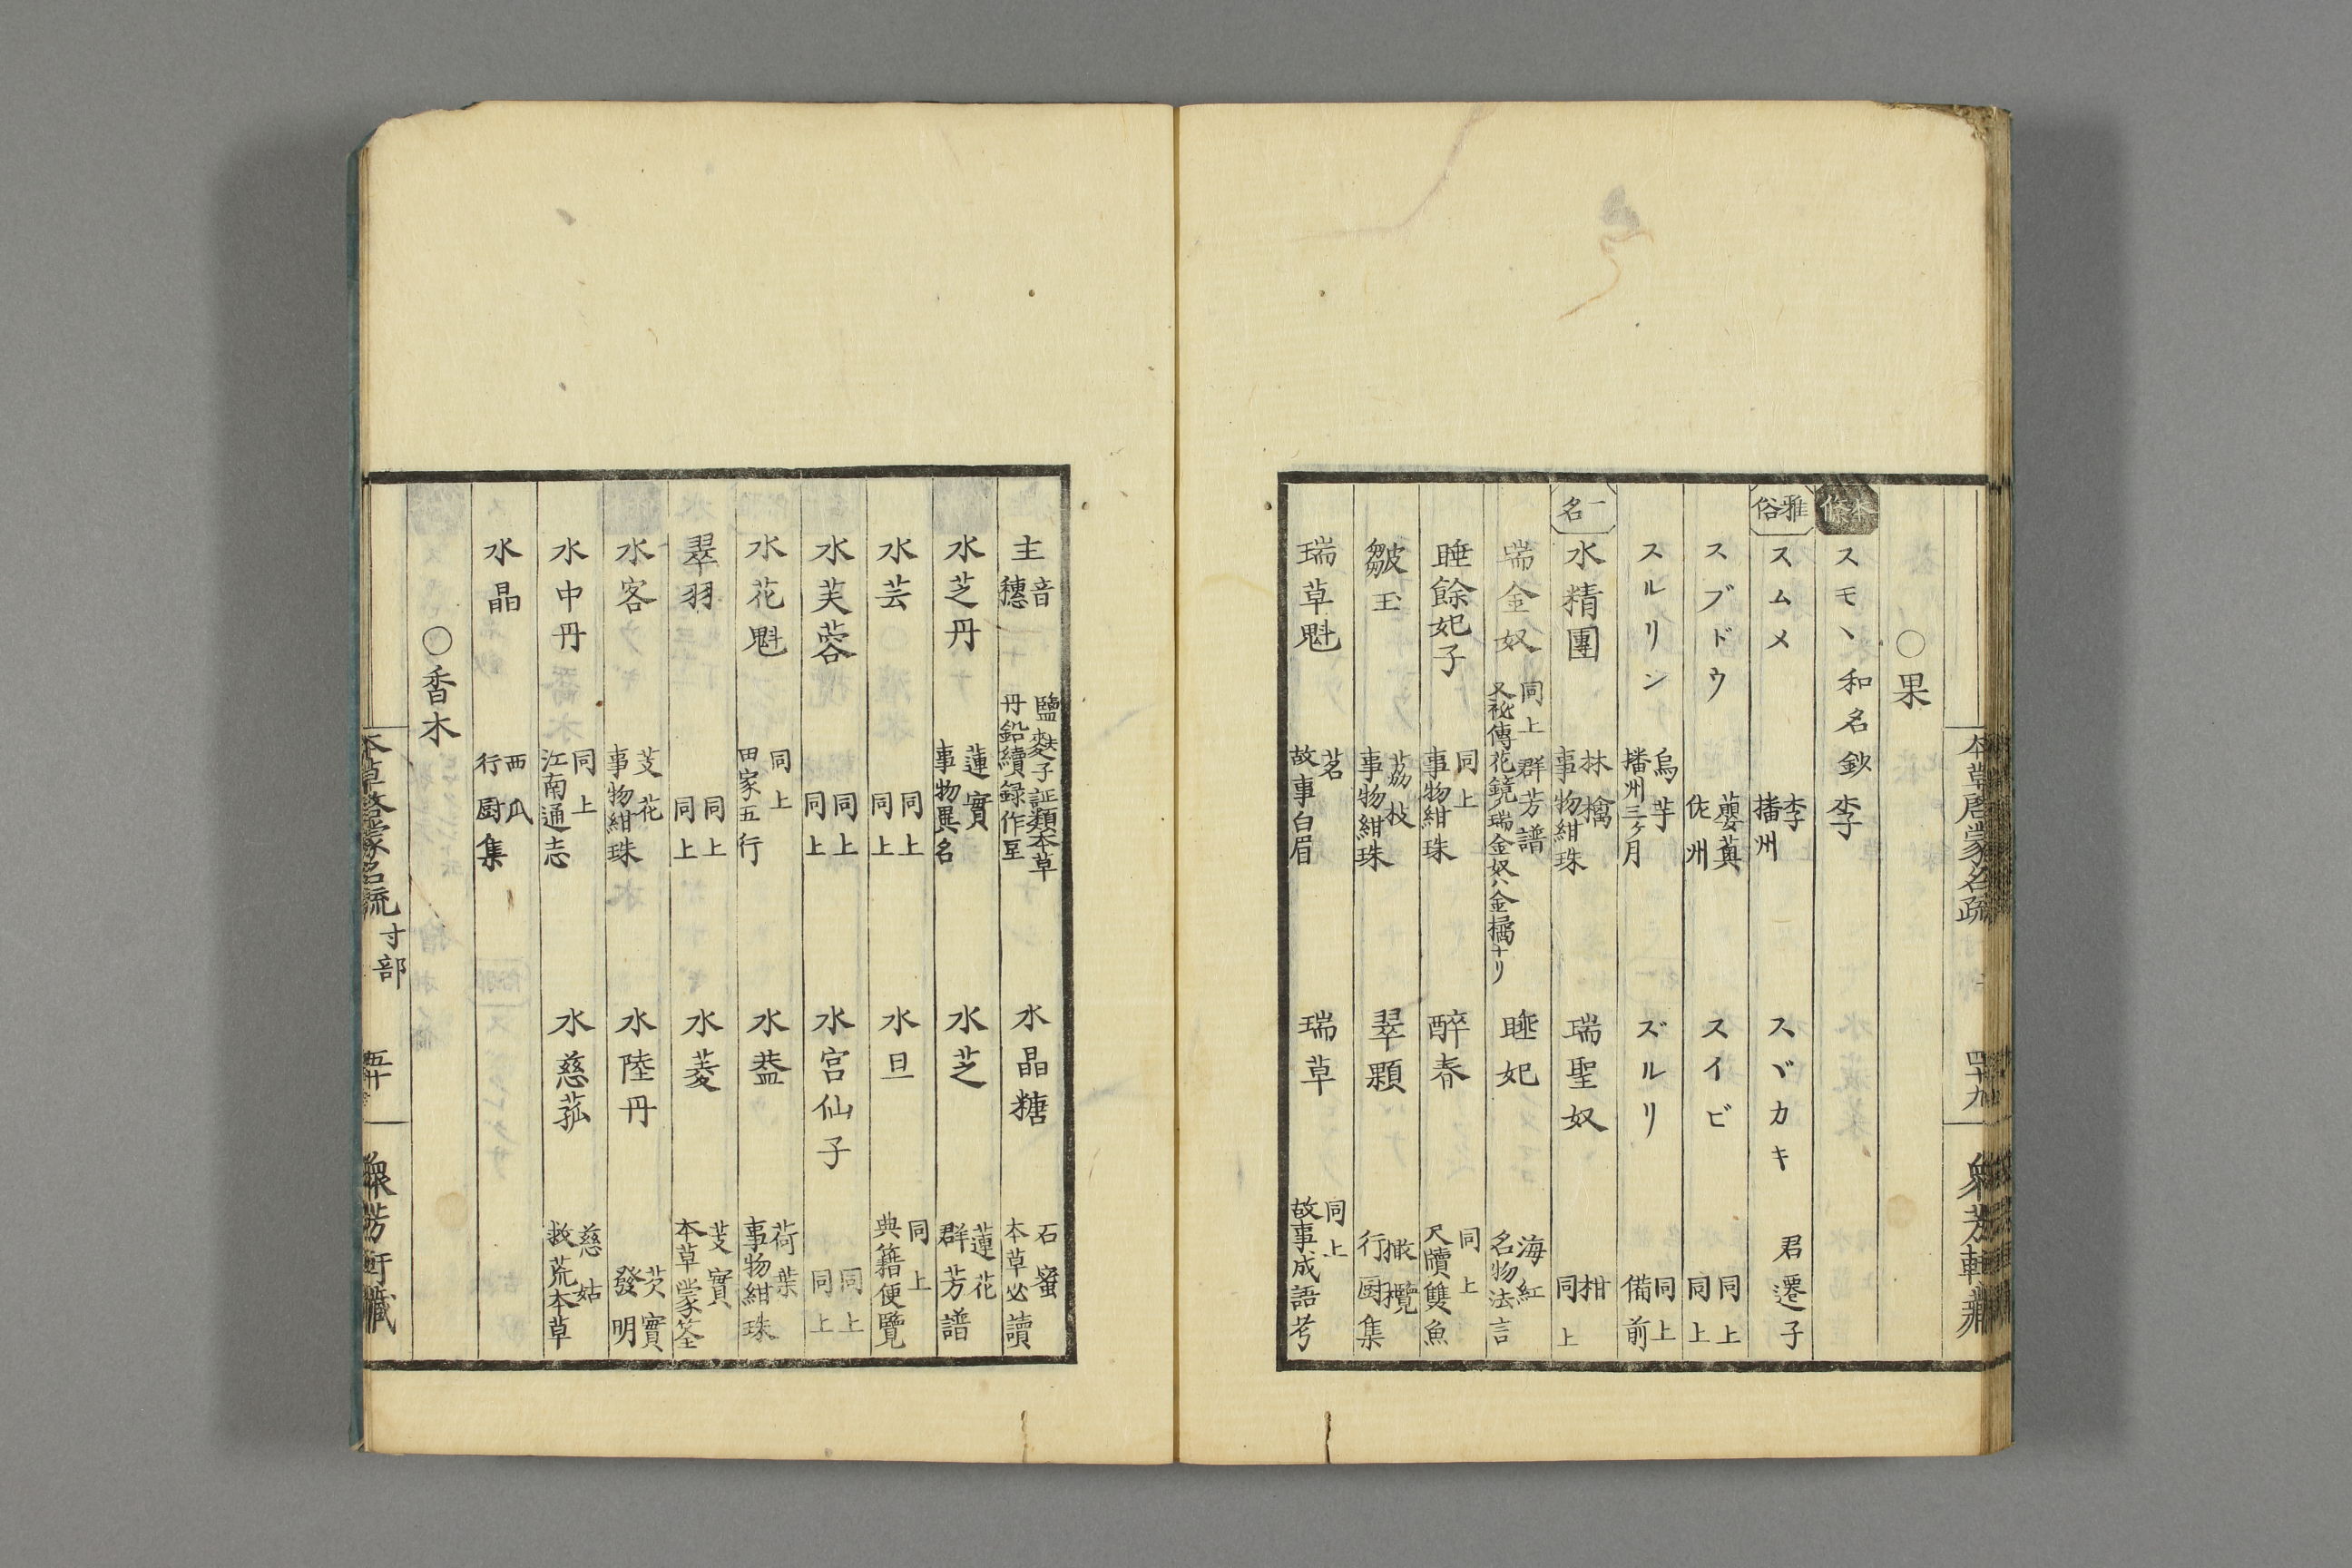 本草啓蒙名疏 四十九 衆芳軒藏
○果
本條 スモヽ 和名鈔 李
雅俗 スムメ 李 播州 スヾカキ 君遷子
スブドウ 蘡薁 佐州 スイビ 同上 同上
スルリン 烏芋 播州三ヶ月 ズルリ 同上 備前
一名 水精團 林檎 事物紺珠 瑞聖奴 柑 同上
瑞金奴 同上 群芳譜 又祕傳花鏡ノ瑞金奴ハ金橘ナリ 睡妃 海紅 名物法言
睡餘妃子 同上 事物紺珠 醉春 同上 尺牘雙魚
皺玉 茘枝 事物紺珠 翠顆 橄欖 行厨集
瑞草魁 茗 故事白眉 瑞草 同上 故事成語考
主 音穗 鹽麩子 証類本草 丹鉛續録作㘸 水晶糖 石蜜 本草必讀
水芝丹 蓮實 事物異名 水芝 蓮花 群芳譜
水芸 同上 同上 水旦 同上 典籍便覽
水芙蓉 同上 同上 水宮仙子 同上 同上
水花魁 同上 田家五行 水葢 荷葉 事物紺珠
翠羽 同上 同上 水菱 芰實 本草蒙筌
水客 芰花 事物紺珠 水陸丹 芡實 發明
水中丹 同上 江南通志 水慈菰 慈姑 救荒本草
水晶 西瓜 行厨集
○香木
本草啓蒙名疏 寸部 五十 衆芳軒藏